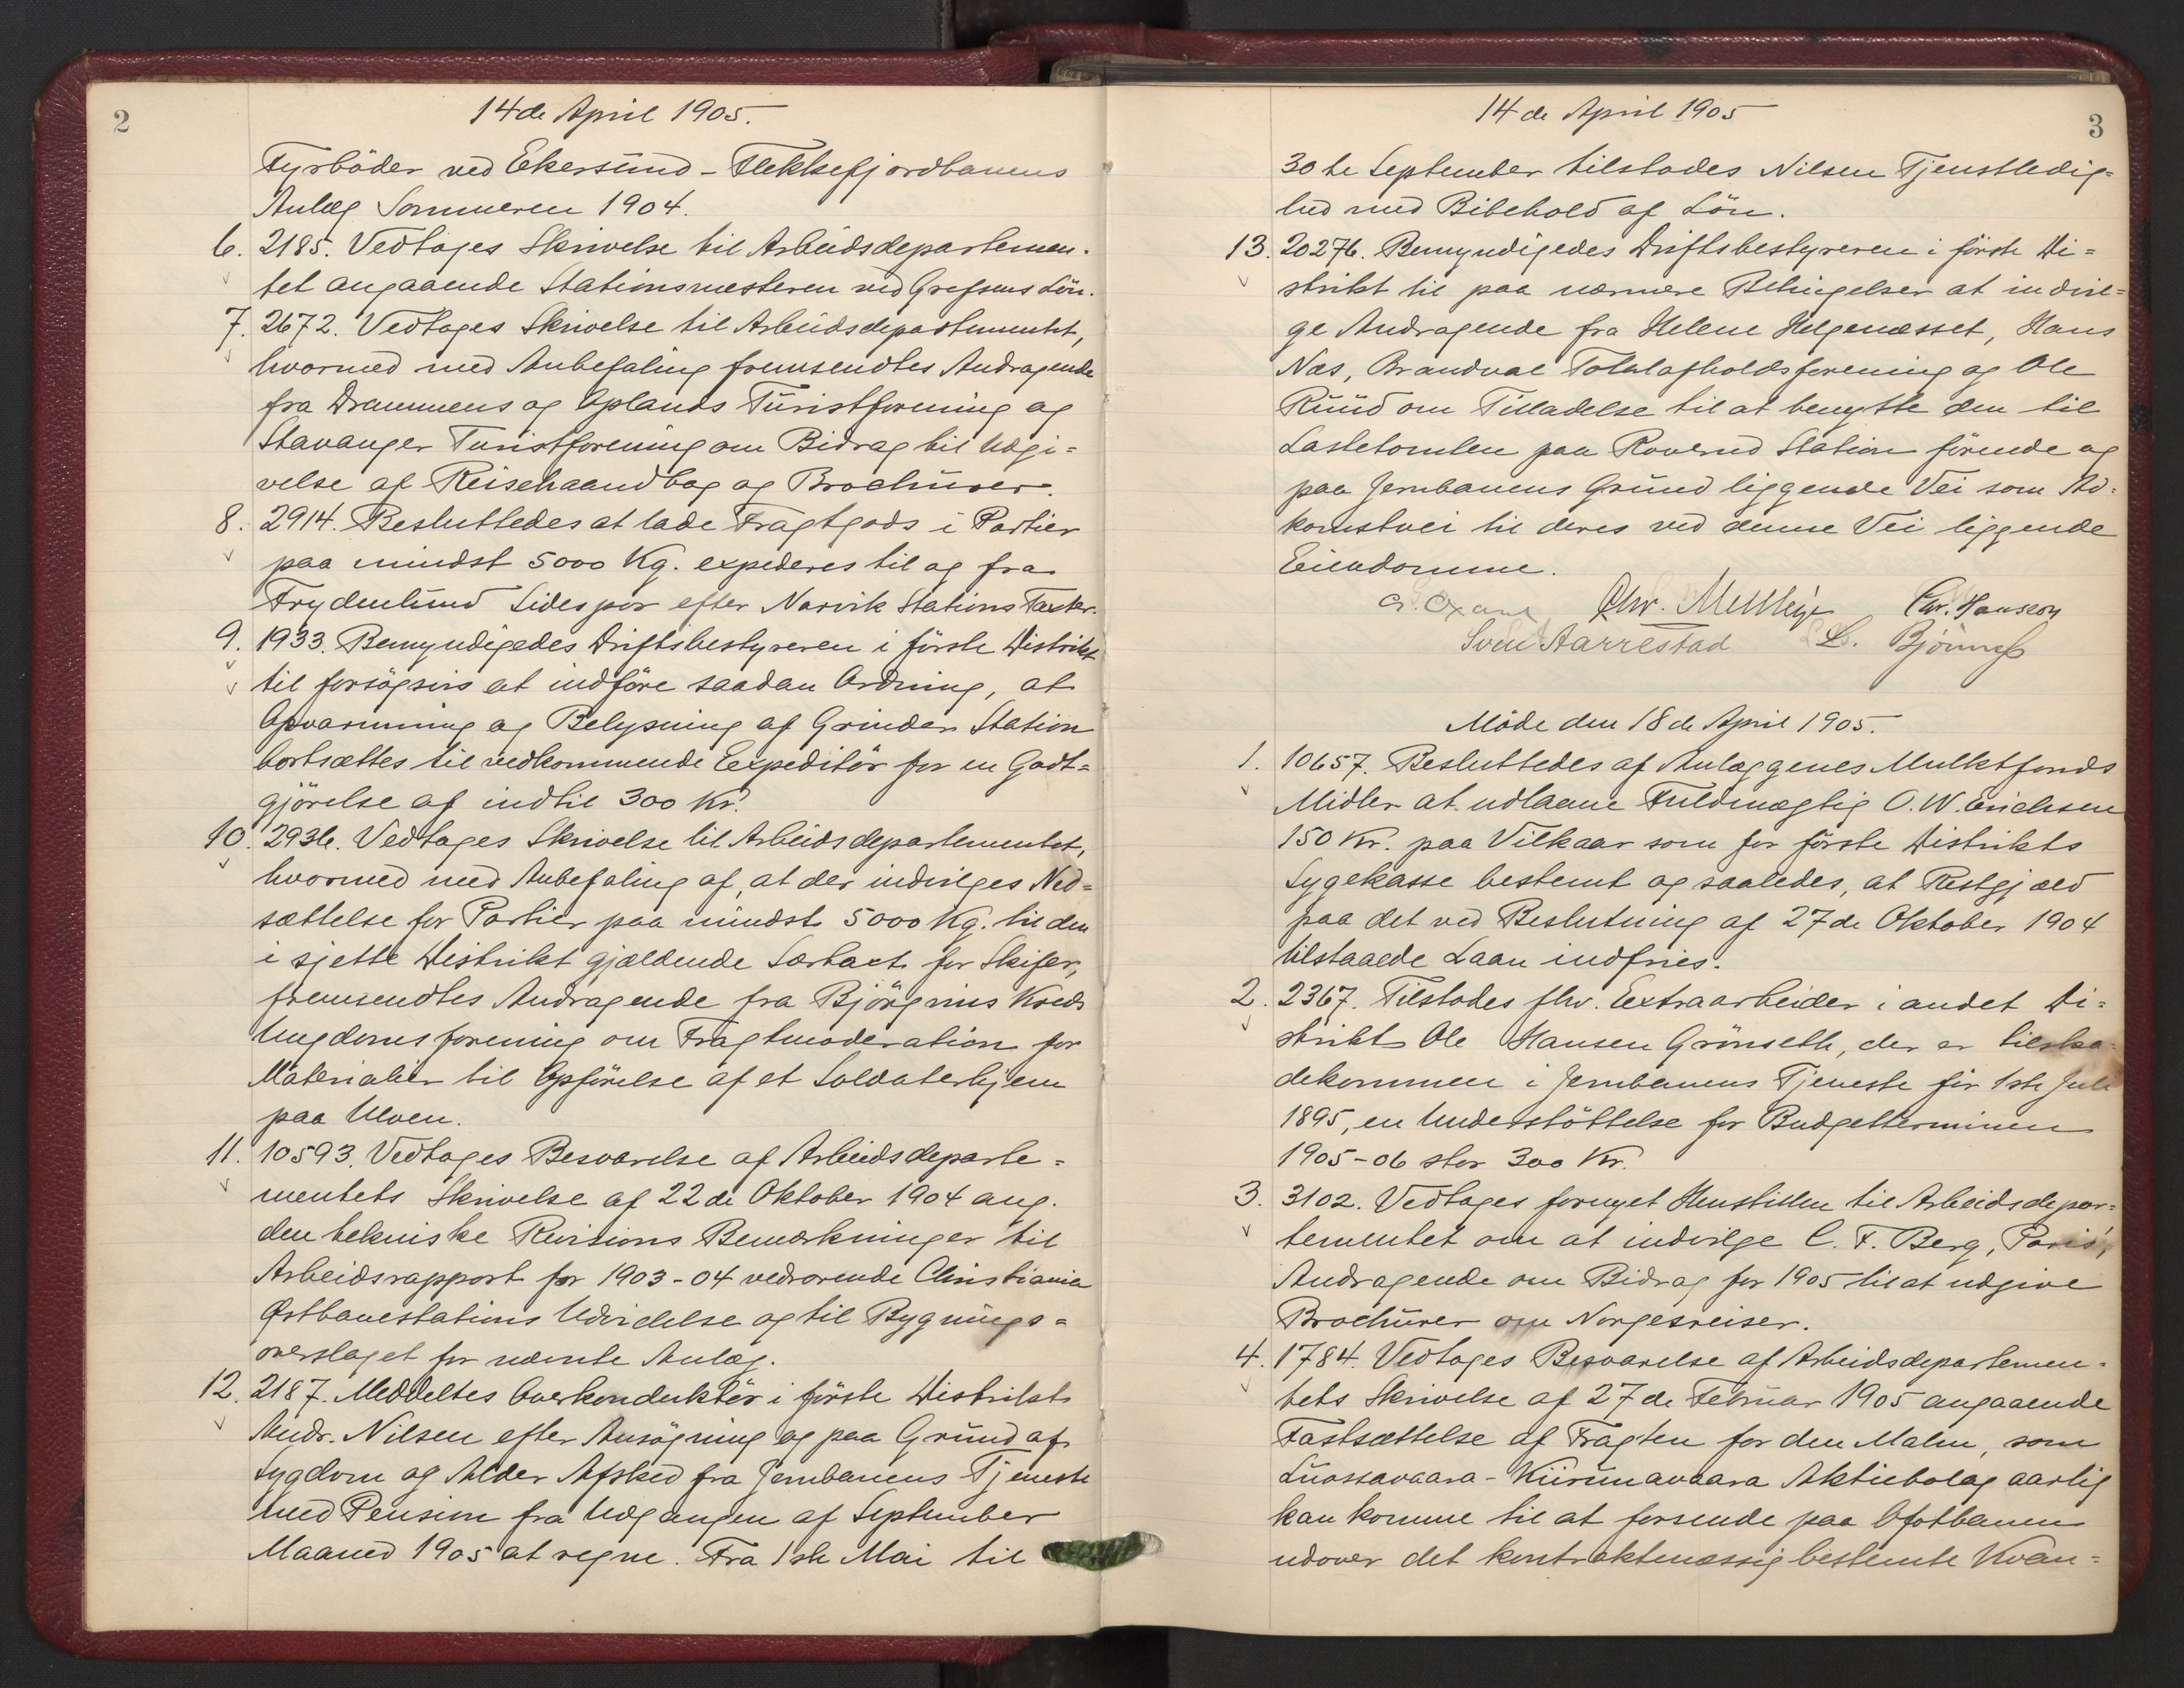 2
14de April 1905.
Fyrböder ved Ekersund-Flekkefjordbanens
Anlæg Sommeren 1904.
6. 2185. Vedtoges Skrivelse til Arbeidsdepartemen-
tet angaaende Stationsmesteren ved Grefsens Lön.
7. 2672. Vedtoges Skrivelse til Arbeidsdepartementet,
hvormed med Anbefaling fremsendtes Andragende
fra Drammens og Oplands Turistforening og
Stavanger Turistforening om Bidrag til Udgi=
velse af Reisehaandbog og Brochurer.
8. 2914. Besluttedes at lade Fragtgods i Partier
paa mindst 5000 Kg. expederes til og fra
Frydenlund Sidespor efter Narvik Stations Taxter.
9. 1933. Bemyndigedes Driftsbestyreren i förste Distrikt
til forsögsvis at indföre saadan Ordning, at
Opvarmning og Belysning af Grinder Station
bortsættes til vedkommende Expeditör for en Godt=
gjörelse af indtil 300 Kr.
10. 2936. Vedtoges Skrivelse til Arbeidsdepartementet,
hvormed med Anbefaling af, at der indvilges Ned=
sættelse for Partier paa mindst 5000 Kg. til den
i sjette Distrikt gjældende Særtaxt for Skifer,
fremsendtes Andragende fra Björgvins Kreds
Ungdomsforening om Fragtmoderation for
Materialier til Opförelse af et Soldaterhjem
paa Ulven.
11. 10593. Vedtoges Besvarelse af Arbeidsdeparte=
mentets Skrivelse af 22de Oktober 1904 ang.
den tekniske Revisions Bemærkninger til
Arbeidsrapport for 1903-04 vedrørende Christiania
Østbanestations Udvidelse og til Bygnings=
overslaget for nævnte Anlæg.
12. 2187. Meddeltes Overkonduktör i förste Distrikt
Andr. Nilsen efter Ansögning og paa Grund af
Sygdom og Alder Afsked fra Jernbanens Tjeneste
med Pension fra Udgangen af September
Maaned 1905 at regne. Fra 1ste Mai til
14de April 1905
3
30te September tilstodes Nilsen Tjenstledig=
hed med Bibehold af Lön.
13. 20276. Bemyndigedes Driftsbestyreren i förste Di=
strikt til paa nærmere Betingelser at indvil=
ge Andragende fra Helene Helgenæsset, Hans
Næs, Brandval Totalafholdsforening og Ole
Ruud om Tilladelse til at benytte den til
Lastetomten paa Roverud Station förende og
paa Jernbanens Grund liggende Vei som Ad=
komstvei til deres ved denne Vei liggende
Eiendomme.
Chr. Hansson
Svend Aarrestad
Möde den 18de April 1905.
1. 10657. Besluttedes af Anlæggenes Mulktfonds
Midler at udlaane Fuldmægtig O. W. Erichsen
150 Kr. paa Vilkaar som for förste Distrikts
Sygekasse bestemt og saaledes, at Restgjæld
paa det ved Beslutning af 27de Oktober 1904
tilstaaede Laan indfries.
2. 2367. Tilstodes fhv. Extraarbeider i andet Di=
strikt Ole Hansen Grönseth, der er tilska=
dekommen i Jernbanens Tjeneste för 1ste Juli
1895, en Understöttelse for Budgetterminen
1905-06 stor 300 Kr.
3. 3102. Vedtoges fornyet Henstillen til Arbeidsdepar=
tementet om at indvilge C. F. Berg, Paris',
Andragende om Bidrag for 1905 til at udgive
Brochurer om Norgesreiser.
4. 1784. Vedtoges Besvarelse af Arbeidsdepartemen-
tets Skrivelse af 27de Februar 1905 angaaende
Fastsættelse af Fragten for den Malm, som
Luossavaara-Kiirunavaara Aktiebolag aarlig
kan komme til at forsende paa Ofotbanen
udover det kontraktmæssig bestemte Kvan=